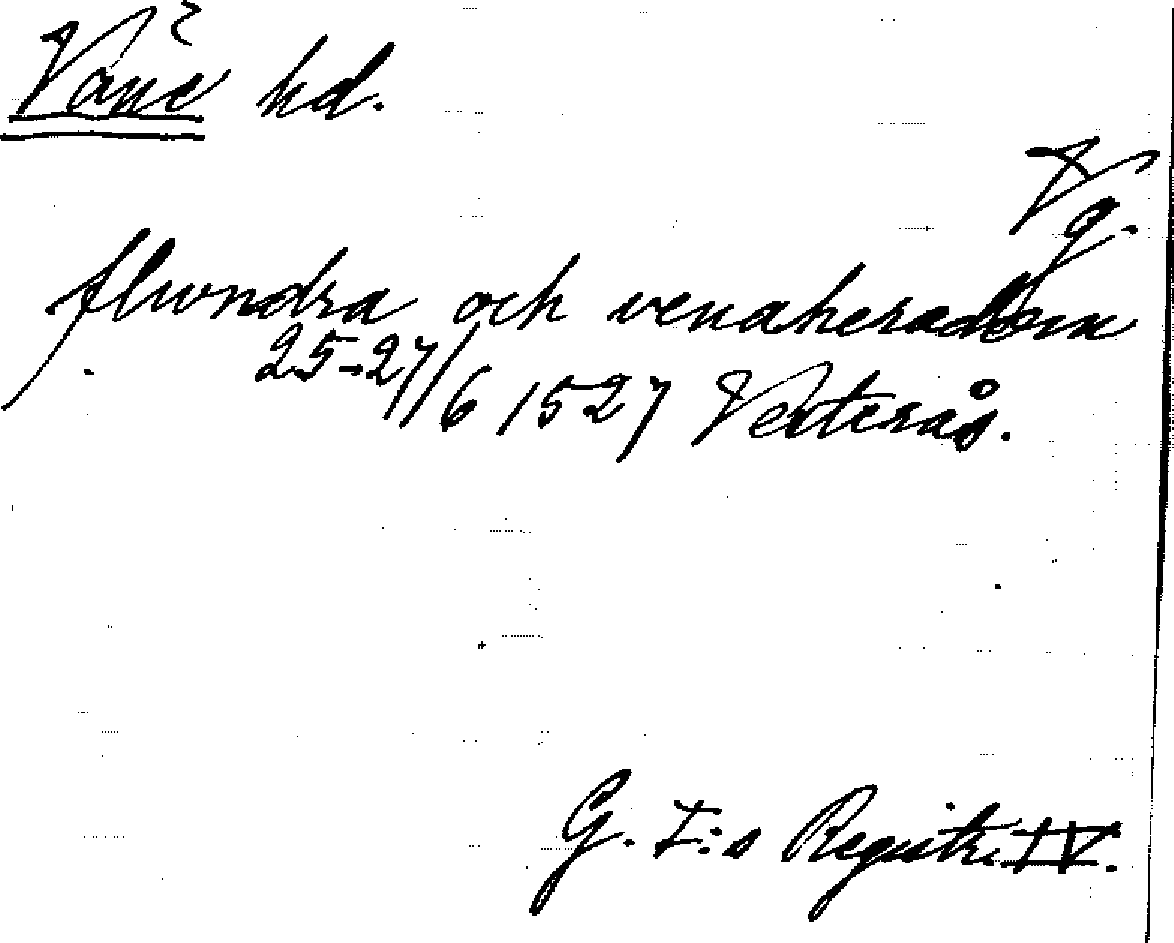 Väne hd.
Vg.
flwndra och venaheradom
25-27/6 1527 Vesterås.
G. I:s Registr. IV.